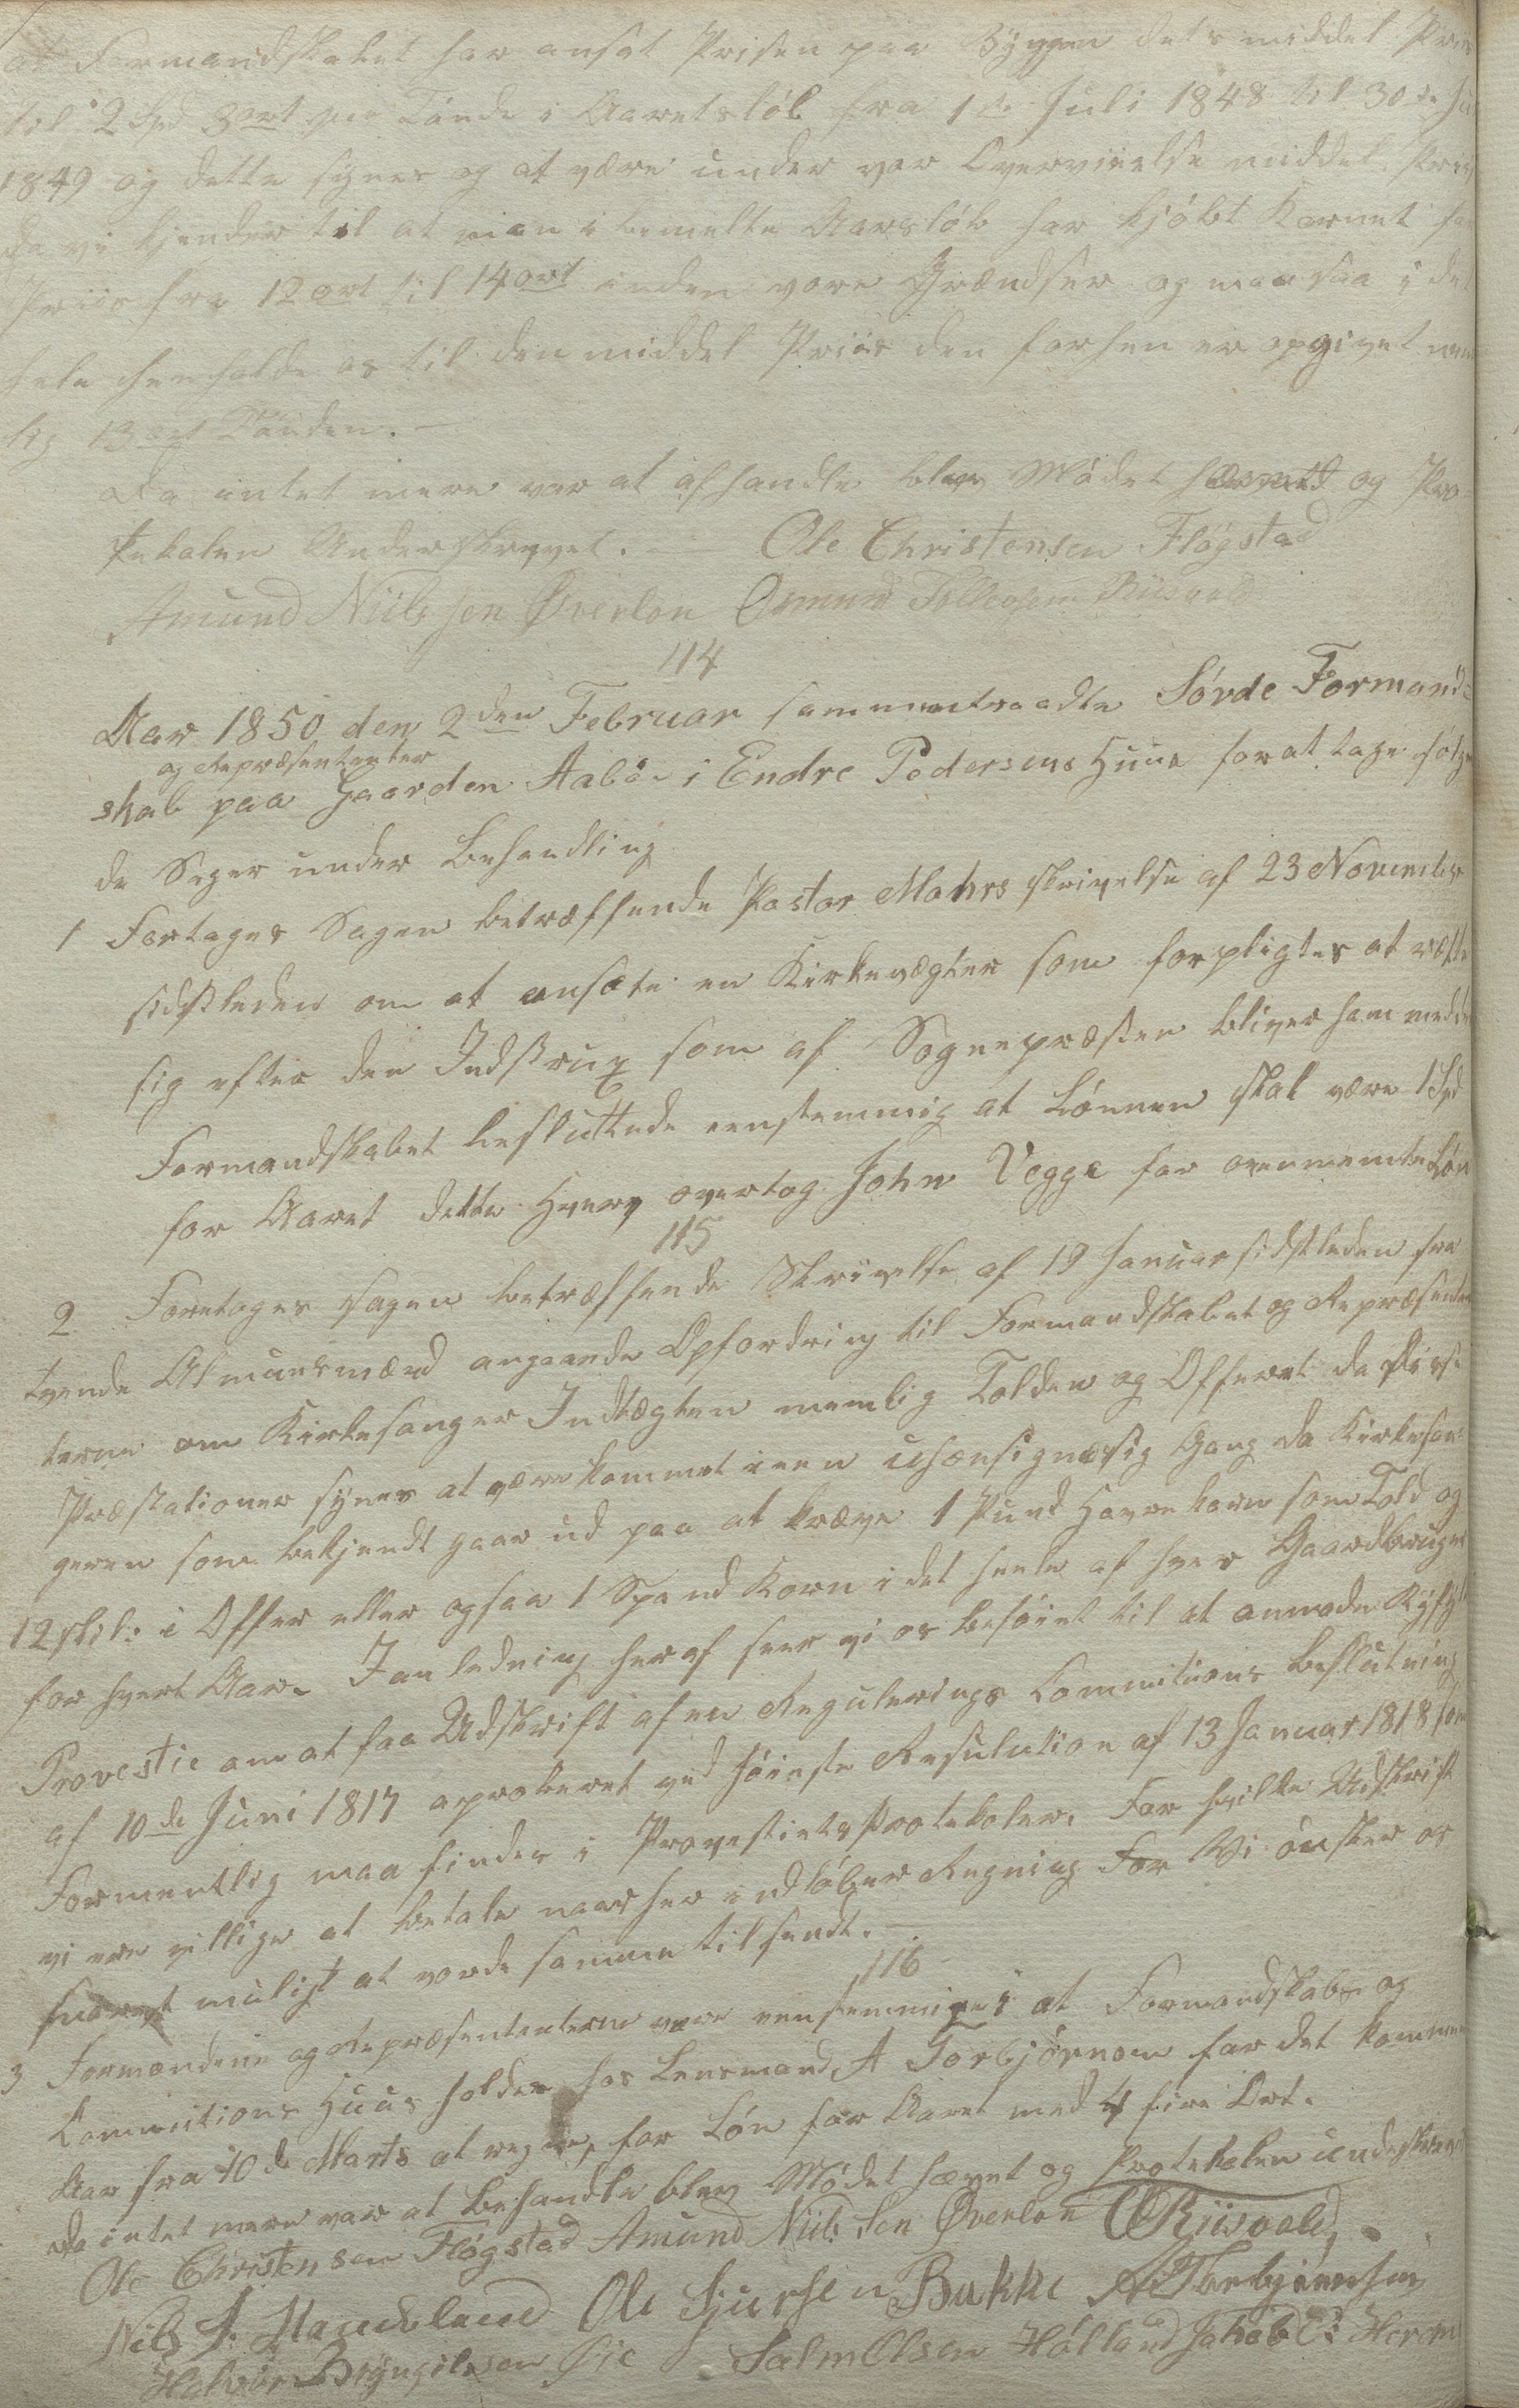 at Formandskabet har ansat Prisen paa Byggen dets middel Priis
til 2 Spd 3 ort pr Tønde i Aaretsløb fra 1ste Juli 1848 til 30te Ju
1849 og dette synes og at være under vor Overviielse middel Priis
da vi kjender til at man i bemelte Aarsløb har kjøbt Kornet for
Priis fra 12 ort til 14 ort inden vore Grændser og maa saa i det
hele henholde os til den middel Priis den forhen er opgivet nem
lig 13 ort Tønden. —
Da intet mere var at afhandle blev Mødet hævet og Pro
tekolen Underskrevet. — Ole Christensen Fløgstad
Amund Niils sen Øverlon Osmund Tollegsen Riisvold
114
Aar 1850 den 2den Februar sammentraadte Søvde Formand=
og Repræsententer
skab paa Gaarden Aabøe i Endre Pedersens Huus for at tage følgen
de Sager under Behandling
1 Fortages Sagen betræffende Pastor Mohrs skrivelse af 23 November
sidstleden om at ansæte en Kirkevægter som forpligtes at rætte
sig efter den Indstrux som af Sognepræsten bliver ham medde
Formandskabet besluttede eenstemmig at Lønnen skal være 1 Spd
for Aaret dette Hverv overtog John Vegge for ovennemte Løn
115
2 Foretages sagen betræffende Skrivelse af 19 Januar sidstleden fra
tvende Almuesmænd angaaende Opfordring til Formandskabet og Repræsenten
terne om Kirkesanger Indtægten nemlig Tolden og Offeret da disse
Præstationer synes at være kommet i een uhensigmæsig Gang da Kirkesan=
geren som bekjendt gaar ud paa at kræve 1 Pund Havrekorn som Told og
12 skil: i Offer eller ogsaa 1 Spand Korn i det heele af hver Gaardbruger
for hvert Aar. I anledning heraf seer vi os beføiet til at anmode Ryfylke
Provestie om at faa Udskrift af en Regulerings Commitions Beslutning
af 10de Juni 1817 aproberet ved høieste Resulution af 13 Januar 1818 som
Formentlig maa findes i Provestiets Protekoler. For hvilke Udskrift
vi ere villige at betale naar her indløber Regning For Vi ønsker os
snarest muligt at vorde samme tilsendt. —
116
3 Formændene og Repræsententerne vare eenstemmige i at Formandskabs og
Commitions Huus holdes hos Lensmand A Torbjørnsen for det kommen
Aar fra 10de Marts at regne, for Løn for Aaret med 4 fire Ort.
Da intet mere var at behandle blev Mødet hævet og Protekolen underskrevet
Ole Christensen Fløgstad Amund Niils Sen Øverlon O Riisvold,
Nils J. Handeland Ole Sjursen Bakke A Torbjørnsen
Halvor Bryngilsen Øie Salm Olsen Hølland Jakob C: Herem